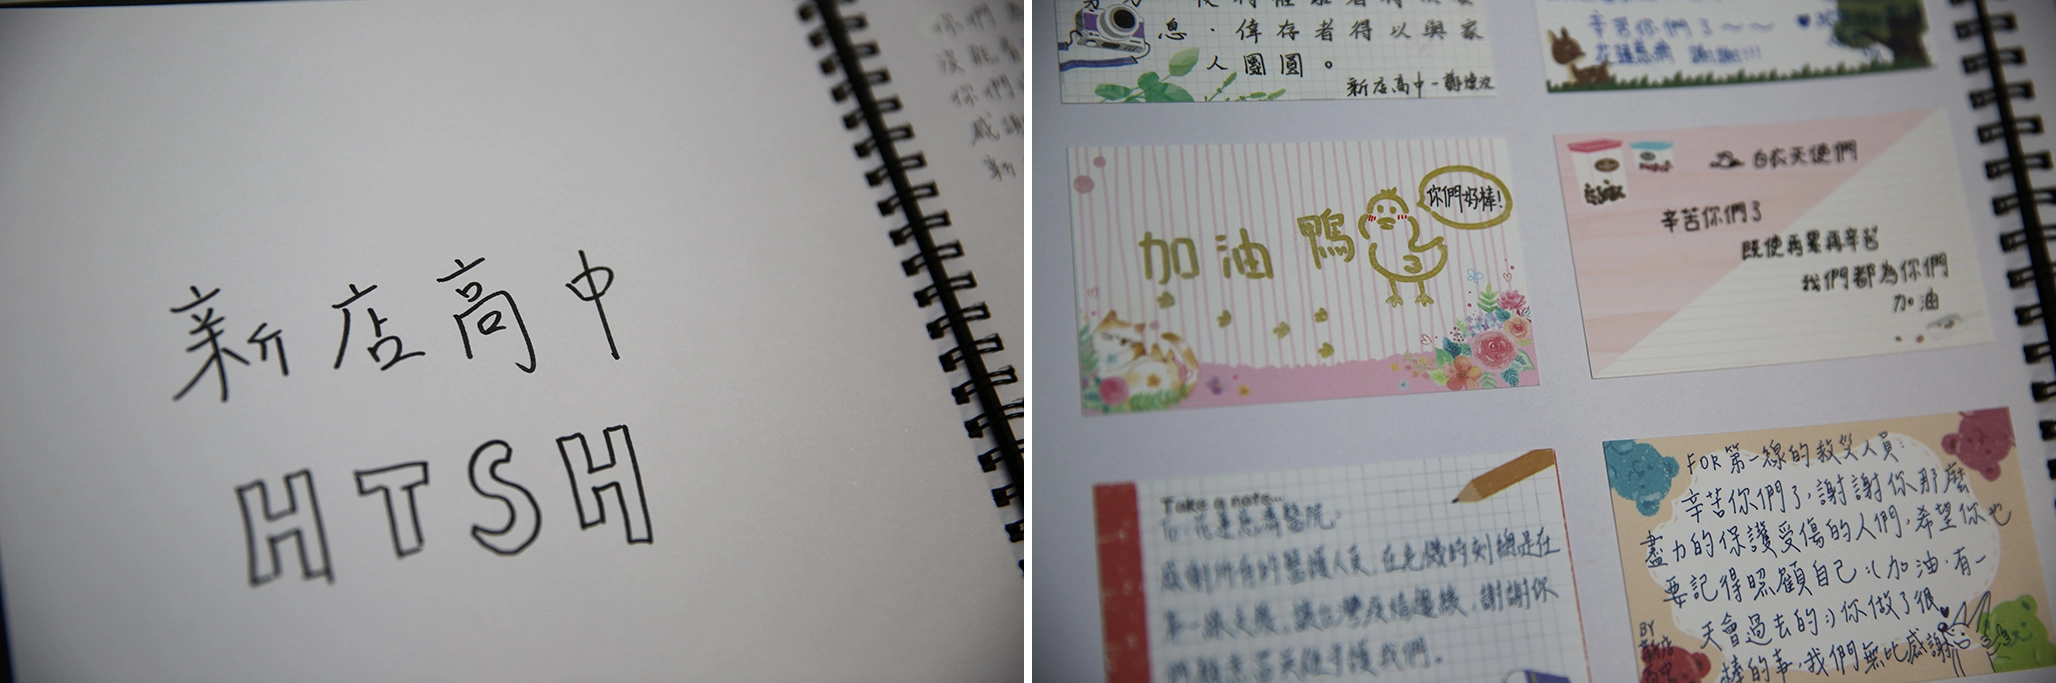 新店高中
HTSH
你們
感謝
新
息，倖存者得以與家
人團圓。
新店高中-鄭
辛苦你們了～～
花蓮慈濟 謝謝!!!
加油鴨
你們好棒!
白衣天使們
辛苦你們了
既使再累再辛苦
我們都為你們
加油
Take a note...
To:花蓮慈濟醫院:
感謝所有的醫護人員,在危機時刻總是在
第一線支援,讓台灣疫情緩,謝謝你
們願意當英雄守護我們。
FOR第一線的救災人員:
辛苦你們了,謝謝你那麼
盡力的保護受傷的人們,希望你也
要記得照顧自己:(加油,有一
天會過去的:)你做了很
棒的事,我們無比感謝
BY
新店
高中